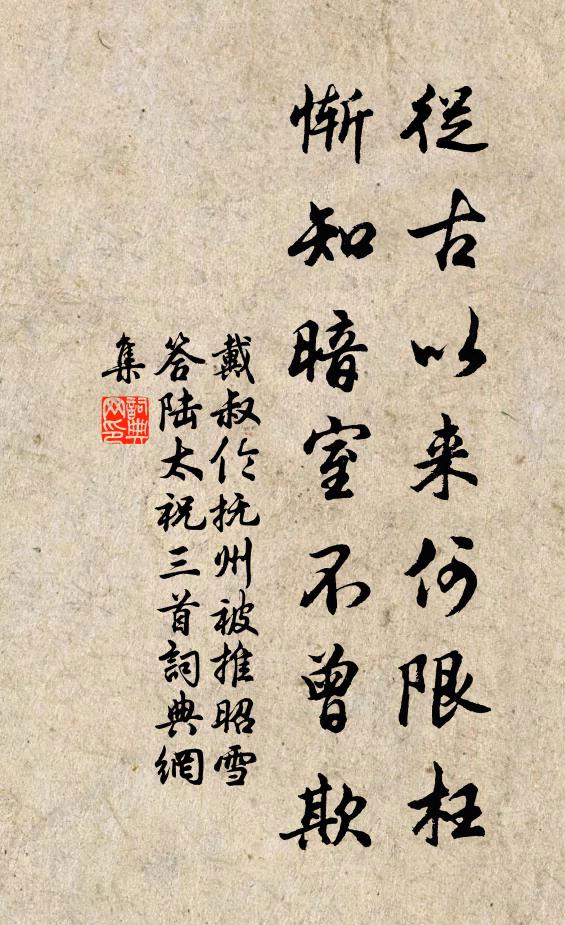 從古以来何限枉
慚知暗室不曾欺
戴叔伦抚州被推昭雪
答陆太祝三首詞典網
集
詞典
网印